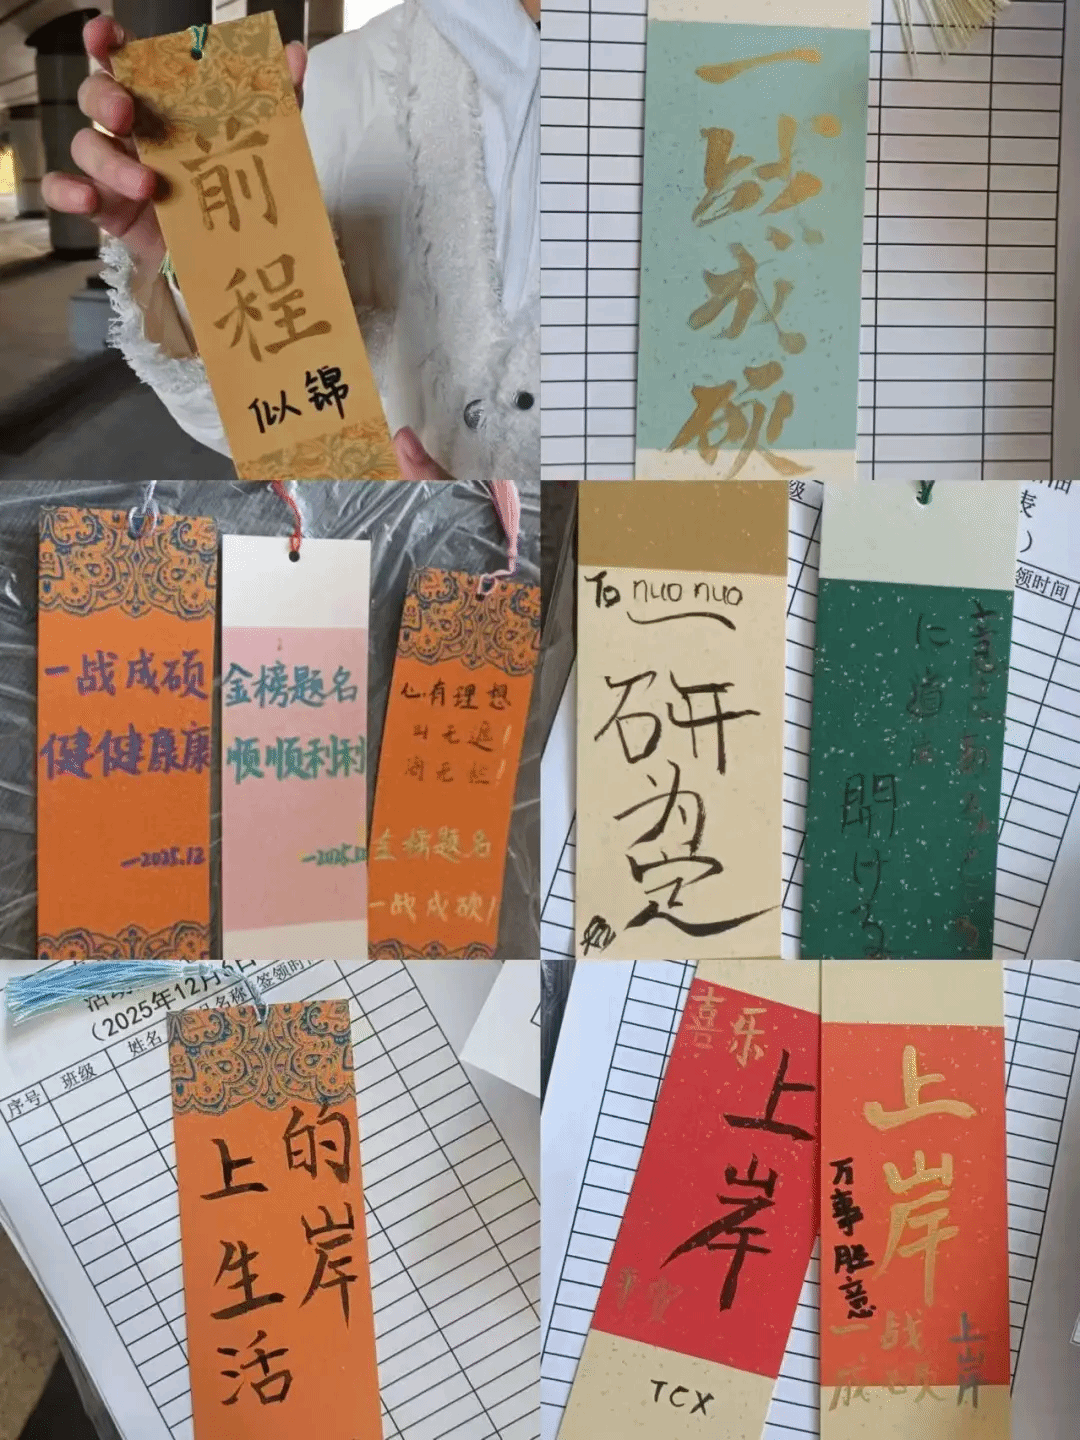 前程
似锦
一战成硕
一战成硕
健健康康
—2025.12
金榜题名
顺顺利利
—2025.12
心有理想
金榜题名
一战成硕!
To nuo nuo
一研为定
级
表
)
领时间
に道は
開ける
活动
(2025年12月6日
序号
班级
姓名
品名称
签领时间
上岸的
生活
喜乐
上岸
TCX
上岸
万事胜意
一战
成硕
上岸